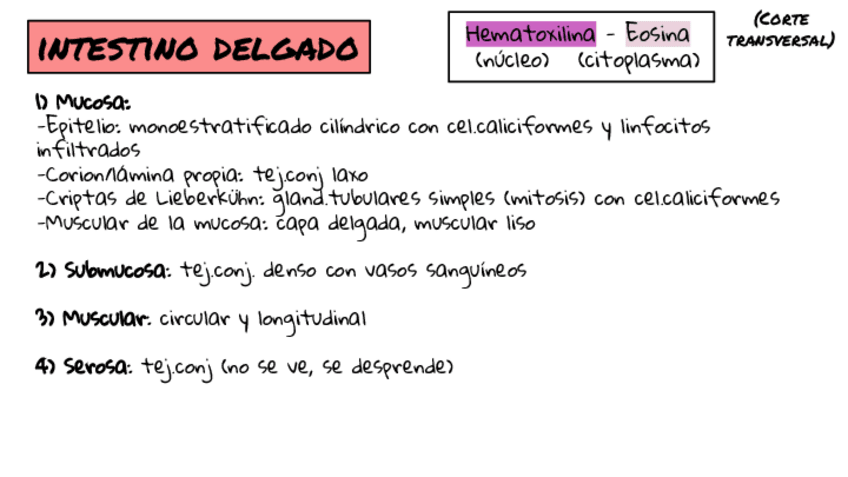 INTESTINO DELGADO
Hematoxilina - Eosina
(núcleo) (citoplasma)
(CORTE
TRANSVERSAL)
1) Mucosa:
-Epitelio: monoestratificado cilíndrico con cel.caliciformes y linfocitos
infiltrados
-Corion/lámina propia: tej.conj laxo
-Criptas de Lieberkühn: gland.tubulares simples (mitosis) con cel.caliciformes
-Muscular de la mucosa: capa delgada, muscular liso
2) Submucosa: tej.conj. denso con vasos sanguíneos
3) Muscular: circular y longitudinal
4) Serosa: tej.conj (no se ve, se desprende)